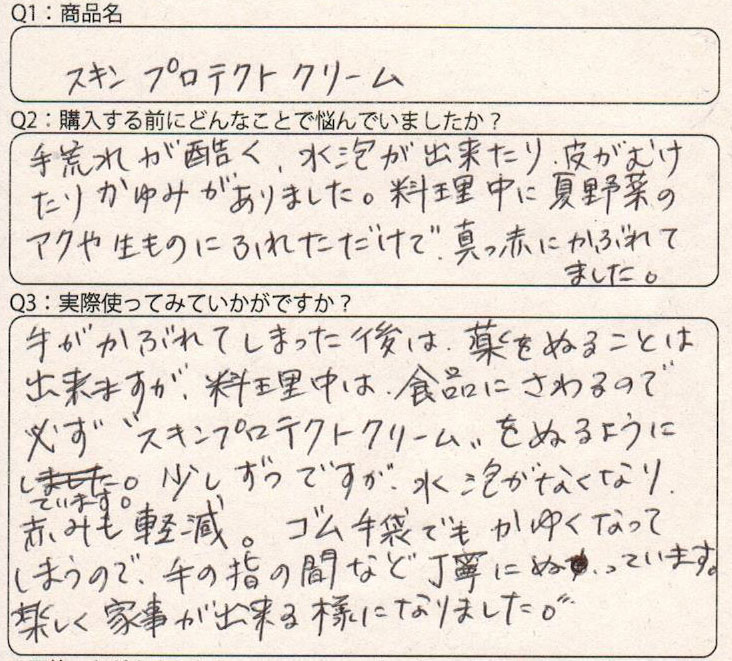 Q1：商品名
スキンプロテクトクリーム
Q2：購入する前にどんなことで悩んでいましたか？
手荒れが酷く、水泡が出来たり、皮がむけ
たりかゆみがありました。料理中に夏野菜の
アクや生ものにふれただけで、真っ赤にかぶれて
ました。
Q3：実際使ってみていかがですか？
手がかぶれてしまった後は、薬をぬることは
出来ますが、料理中は、食品にさわるので
必ず〝スキンプロテクトクリーム〟をぬるように
しました。少しずつですが、水泡がなくなり、
ています。
赤みも軽減。ゴム手袋でもかゆくなって
しまうので、手の指の間など丁寧にぬっています。
楽しく家事が出来る様になりました。〟